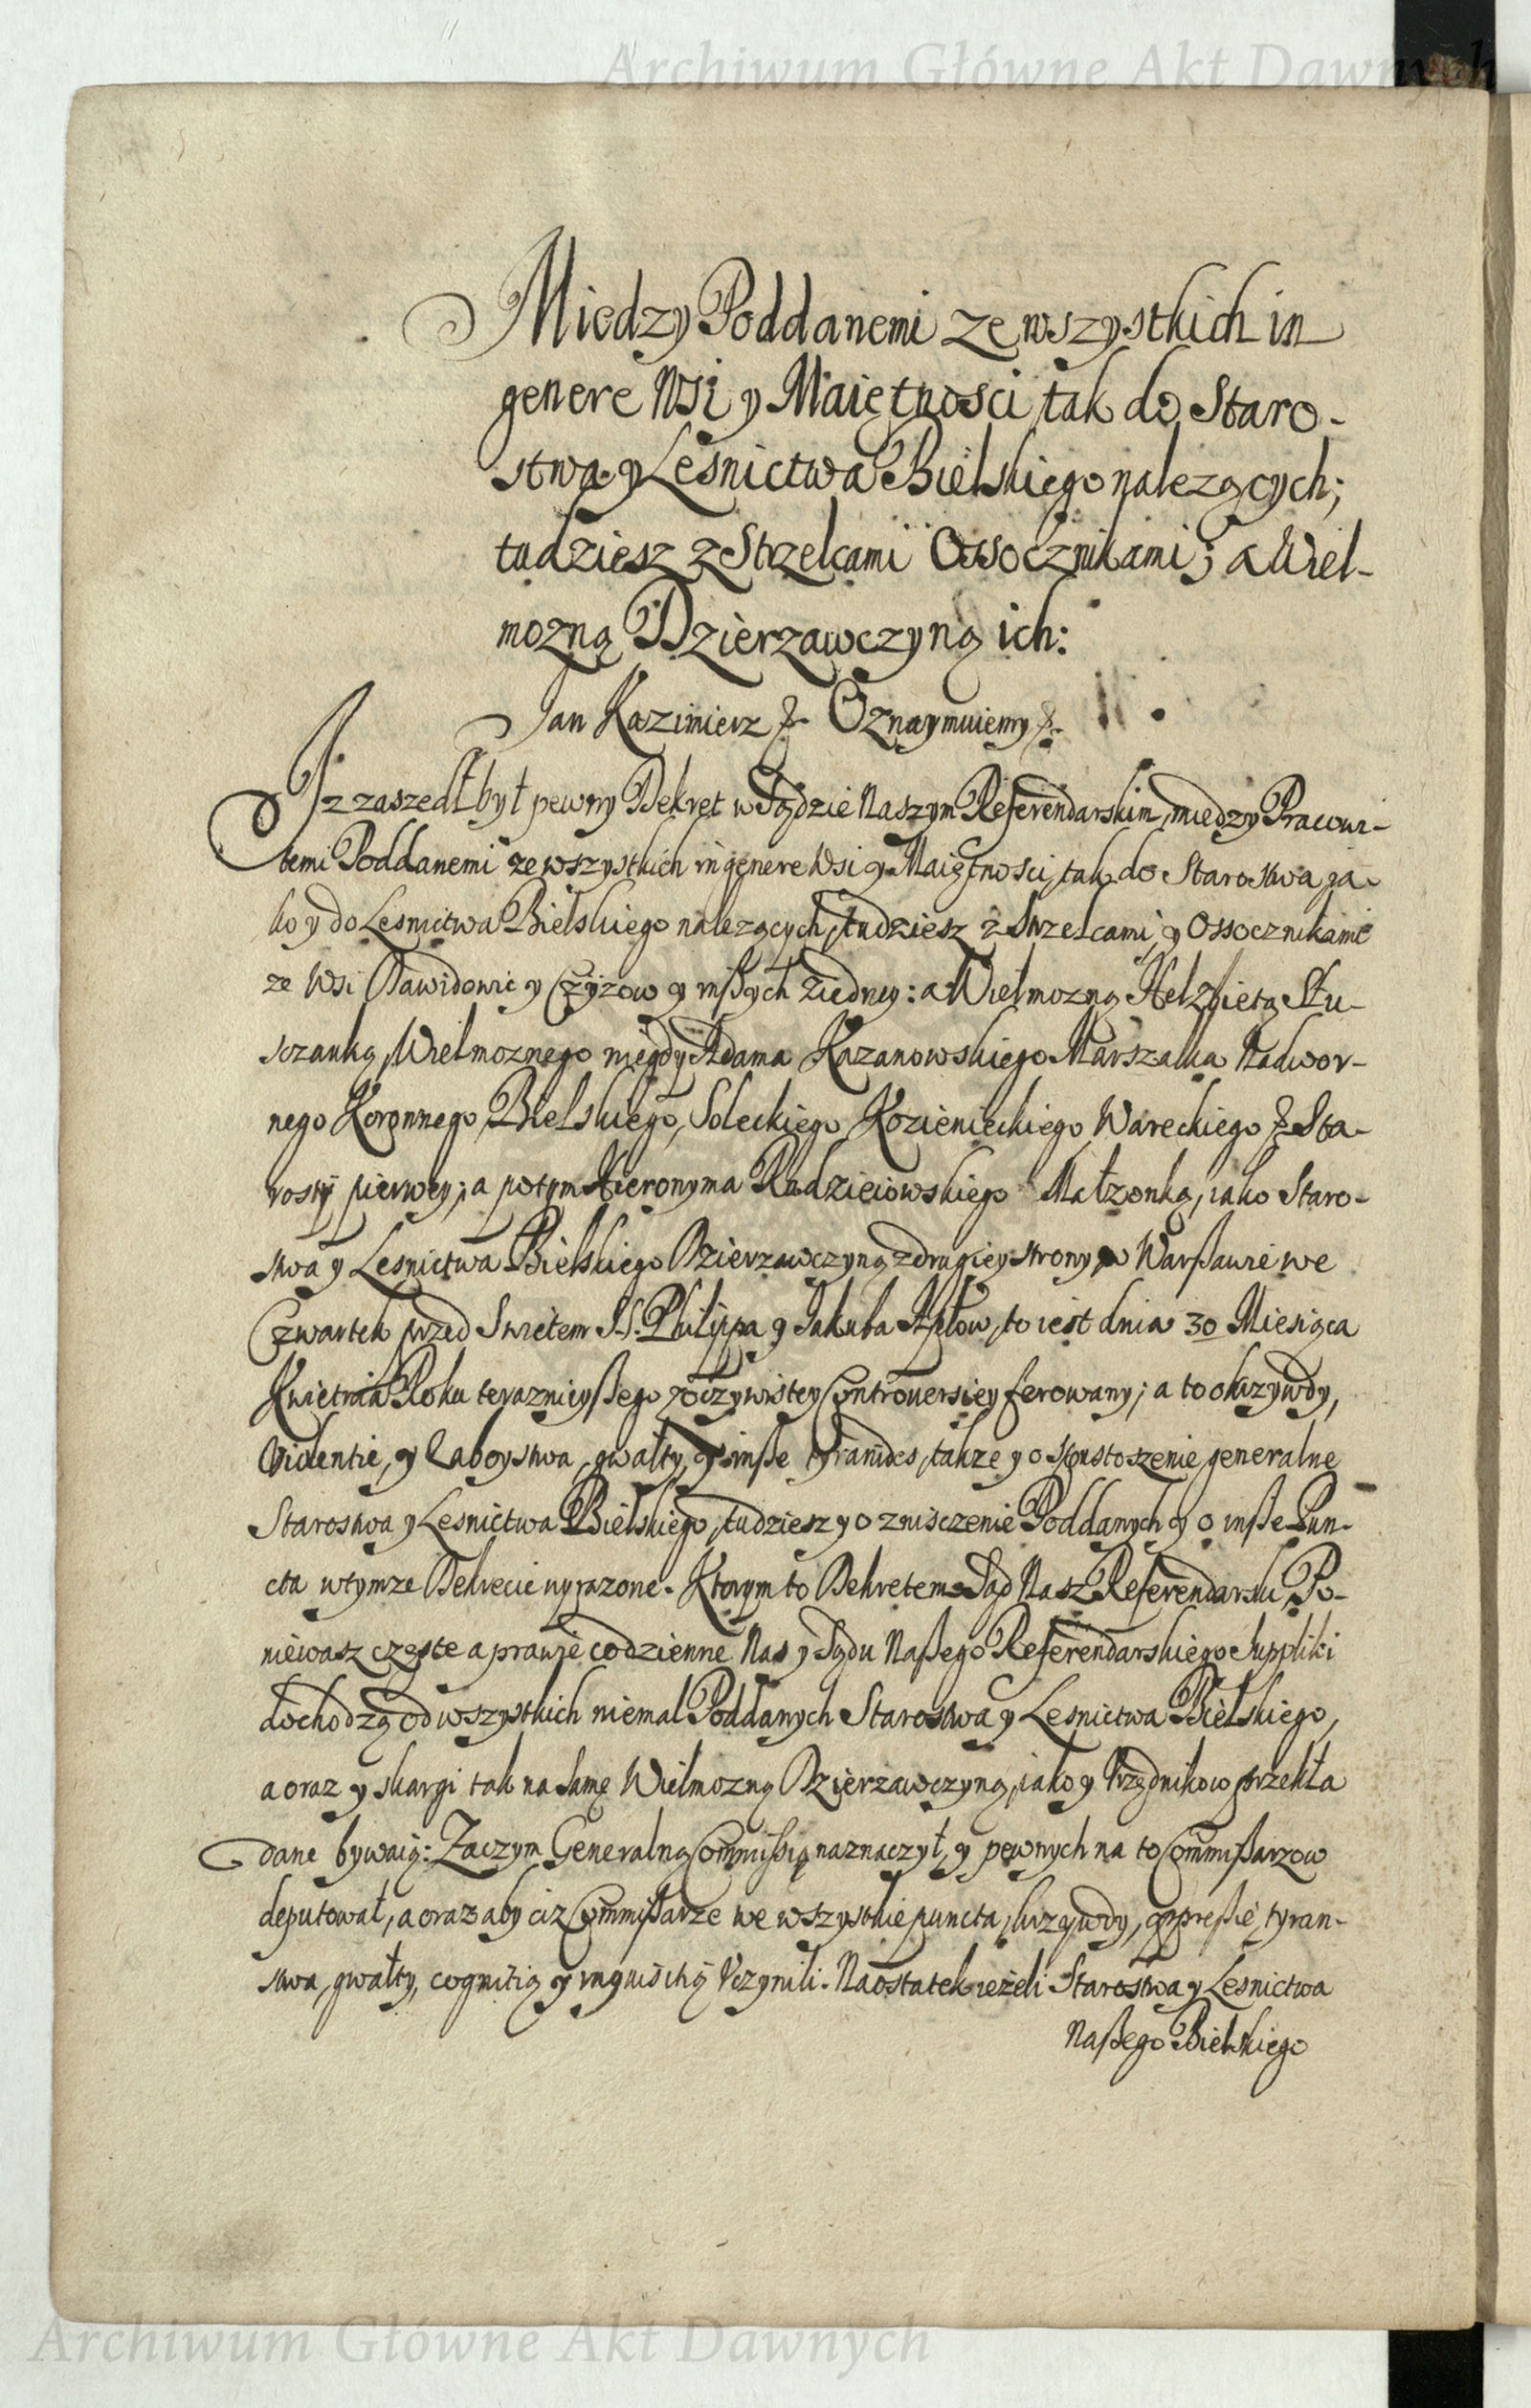 Archiwum Główne Akt Dawnych
Miedzy Poddanemi ze wszystkich in
genere Wsi y Maiętnosci tak do Staro-
stwa y Lesnictwa Bielskiego nalezących;
tudziesz z Strzelcami Ossocznikami; a Wiel-
mozną Dzierzawczyną ich:
Jan Kazimierz &. Oznaymuiemy &.
Iz zaszedł był pewny Dekret w Sądzie Naszym Referendarskim, miedzy Pracowi-
temi Poddanemi ze wszystkich in genere Wsi y Maiętnosci, tak do Starostwa ja-
ko y do Lesnictwa Bielskiego nalezących, tudziesz z Strzelcami y Ossocznikami
ze Wsi Dawidowic y Czyzow y inßych ziedney: a Wielmozną Helzbietą Słu-
sczanką, Wielmoznego niegdy Adama Kazanowskiego Marszałka Nadwor-
nego Koronnego, Bielskiego, Soleckiego, Kozienieckiego Wareckiego & Sta-
rosty pierwey; a potym Hieronyma Radzieiowskiego Małzonką, iako Staro-
stwa y Lesnictwa Bielskiego Dzierzawczyną zdrugiey strony, w Warßawie we
Czwartek przed Swiętem SS. Philippa y Jakuba Apłow, to iest dnia 30 Miesiąca
Kwietnia Roku teraznieyßego zoczywistey Controuersiey ferowany; a to o krzywdy,
Violentie, y Zaboystwa, gwałty, y inße tyranides, takze y o spustoszenie generalne
Starostwa y Lesnictwa Bielskiego, tudziesz y o znisczenie Poddanych y o inße Pun-
cta wtymze Dekrecie wyrazone. Ktorym to Dekretem Sąd Nasz Referendarski, Po-
niewasz częste a prawie codzienne Nas y Sądu Naßego Referendarskiego Suppliki
dochodzą od wszystkich niemal Poddanych Starostwa y Lesnictwa Bielskiego,
a oraz y skargi tak na samę Wielmozną Dzierzawczyną, iako y Vrzędnikow przekła
dane bywaią: Zaczym Generalną Commißią naznaczył, y pewnych na to Commißarzow
deputował, a oraz aby ciz Commißarze we wszystkie puncta, krzywdy, oppreßie, tyran-
stwa, gwałty, cognitią y inquisitią Vczynili. Naostatek iezeli Starostwa y Lesnictwa
Naßego Bielskiego
Archiwum Główne Akt Dawnych